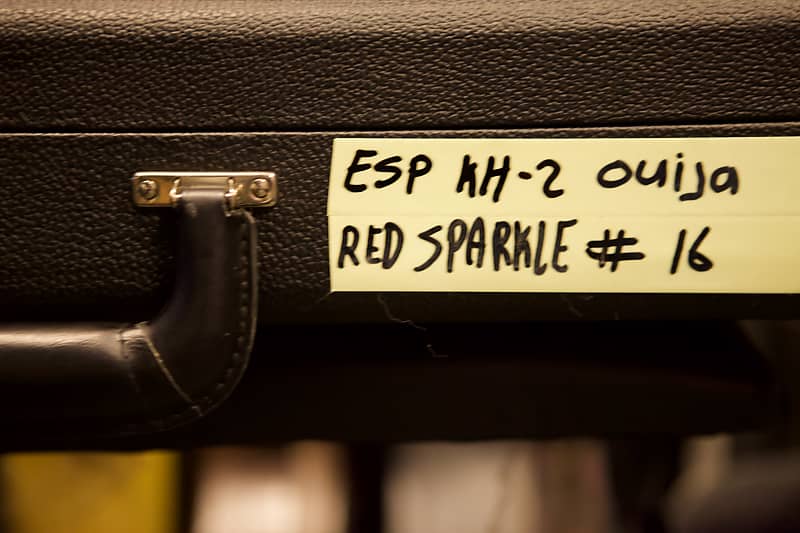 ESP KH-2 ouija
RED SPARKLE # 16